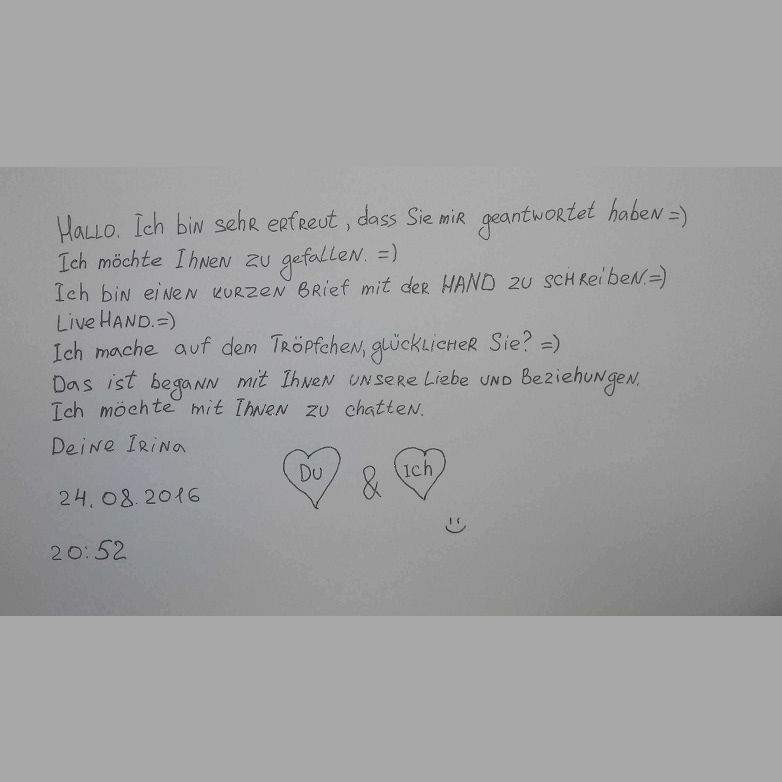 Hallo. Ich bin sehr erfreut, dass Sie mir geantwortet haben =)
Ich möchte Ihnen zu gefallen. =)
Ich bin einen kurzen Brief mit der HAND zu schreiben.=)
Live HAND.=)
Ich mache auf dem Tröpfchen, glücklicher Sie? =)
Das ist begann mit Ihnen unsere Liebe und Beziehungen.
Ich möchte mit Ihnen zu chatten.
Deine Irina
Du & Ich
24.08.2016
20:52